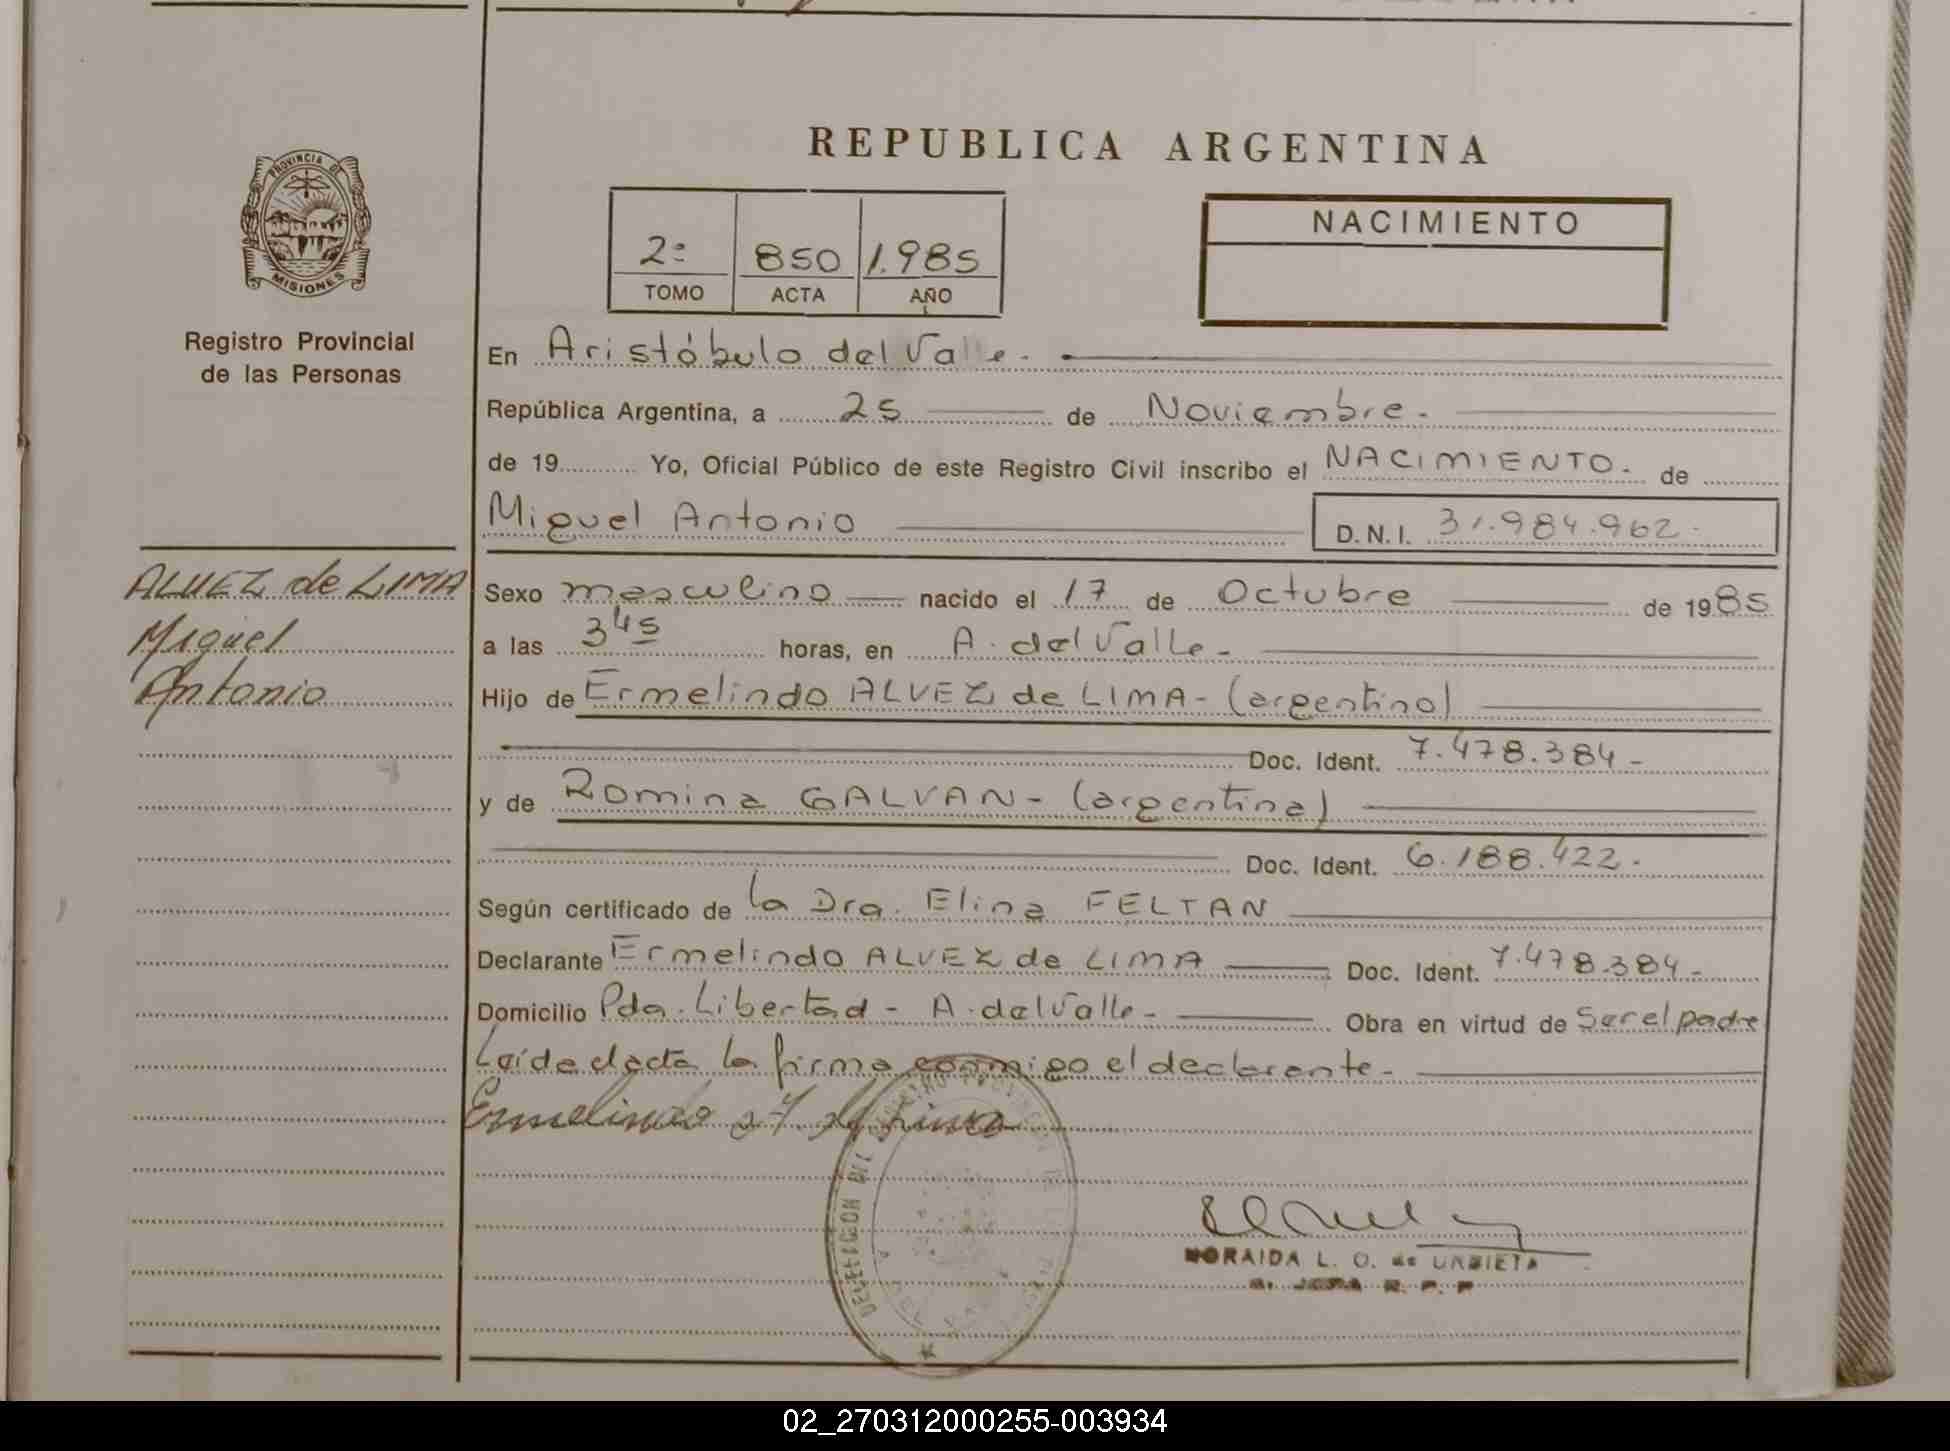 REPUBLICA ARGENTINA
PROVINCIA DE
MISIONES
Registro Provincial
de las Personas
2º 850 1.985
TOMO ACTA AÑO
NACIMIENTO
En Aristóbulo del Valle.
República Argentina, a 25 de Noviembre.
de 19 Yo, Oficial Público de este Registro Civil inscribo el NACIMIENTO. de
Miguel Antonio D.N.I. 31.984.962.
ALVEZ de LIMA
Miguel
Antonio
Sexo masculino nacido el 17 de Octubre de 1985
a las 3 45 horas, en A. del Valle-
Hijo de Ermelindo ALVEZ de LIMA- (argentino)
Doc. Ident. 7.478.384-
y de Romina GALVAN- (argentina)
Doc. Ident. 6.188.422.
Según certificado de la Dra. Elina FELTAN
Declarante Ermelindo ALVEZ de LIMA Doc. Ident. 7.478.384-
Domicilio Pda. Libertad - A. del Valle- Obra en virtud de Ser el padre
Leída el acta la firma conmigo el declarante-
Ermelindo
NORAIDA L. O. de URBIETA
02_270312000255-003934